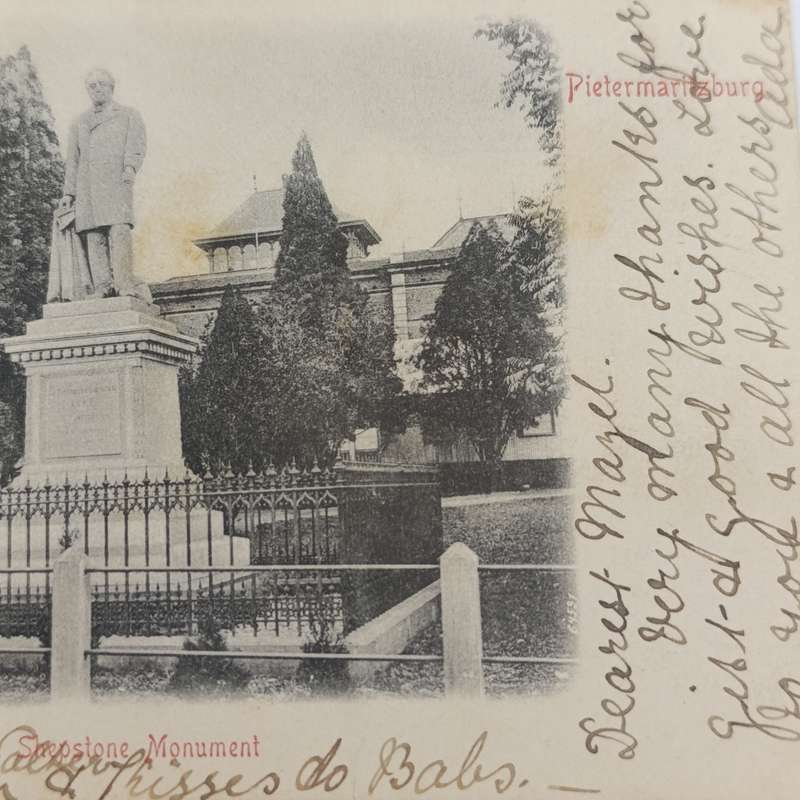 Pietermaritzburg
Dearest Mazel.
Very many thanks for
gift & good wishes. Love
to you & all the others
Ada
Shepstone Monument
& Kisses to Babs. —